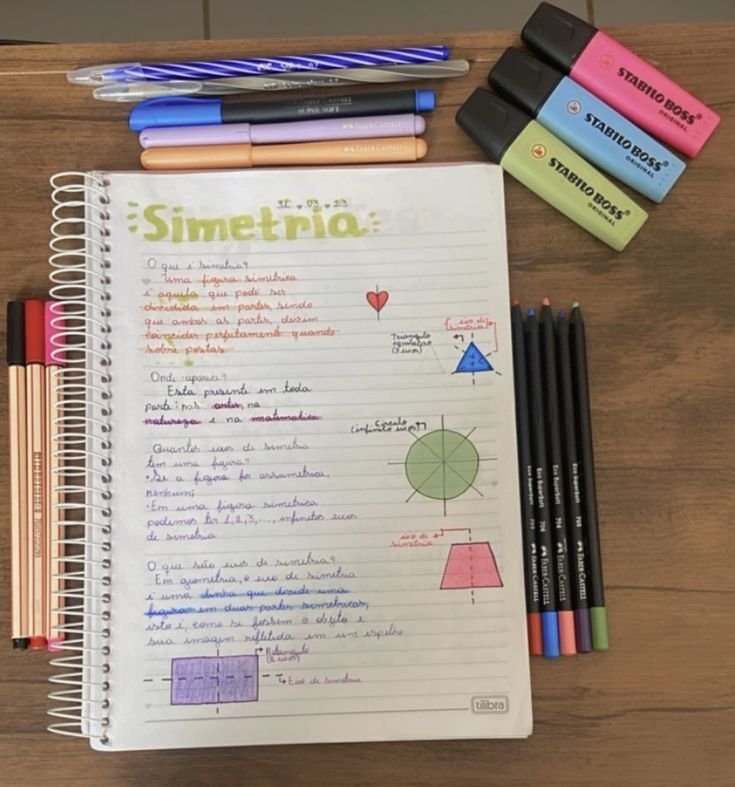 STABILO BOSS
ORIGINAL
STABILO BOSS
ORIGINAL
STABILO BOSS
ORIGINAL
SUPER SOFT
FABER CASTELL
FABER CASTELL
31 03 23
Simetria
O que é simetria?
Uma figura simétrica
é aquela que pode ser
dividida em partes, sendo
que ambas as partes, devem
coincidir perfeitamente quando
sobre postas.
eixo de
simetria
Triangulo
equilatero
(3 eixos)
Onde aparece?
Esta presente em toda
parte: nas artes, na
natureza e na matematica
Circulo
(infinitos eixos)
Quantos eixos de simetria
tem uma figura?
• Se a figura for assimetrica,
nenhum;
• Em uma figura simetrica
podemos ter 1, 2, 3, ..., infinitos eixos
de simetria
eixo de
simetria
O que são eixos de simetria?
Em geometria, o eixo de simetria
é uma linha que divide uma
figura em duas partes simetricas,
isto é, como se fossem o objeto e
sua imagem refletida em um espelho
Retangulo
(2 eixos)
Eixo de simetria
tilibra
FABER-CASTELL
FABER-CASTELL
FABER-CASTELL
FABER-CASTELL